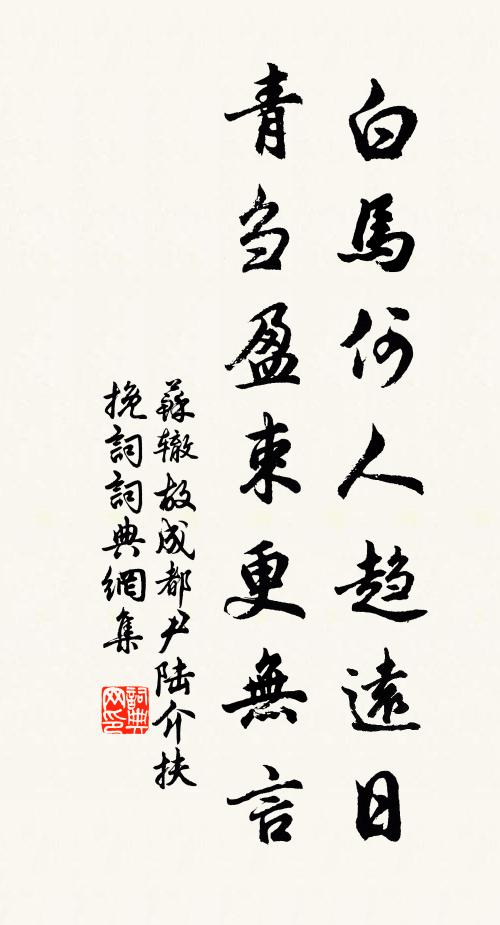 白馬何人趋遠日
青刍盈束更無言
蘇辙故成都尹陆介扶
挽詞詞典網集
詞典网印